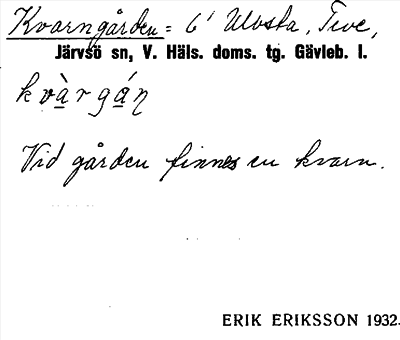 Kvarngården = 6' Ulvsta, Tive,
Järvsö sn, V. Häls. doms. tg. Gävleb. l.
kvàrgáŋ
Vid gården finnes en kvarn.
ERIK ERIKSSON 1932.